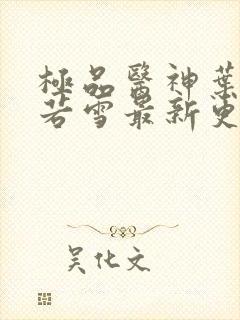 極品醫神葉
若雪最新更
吴化文